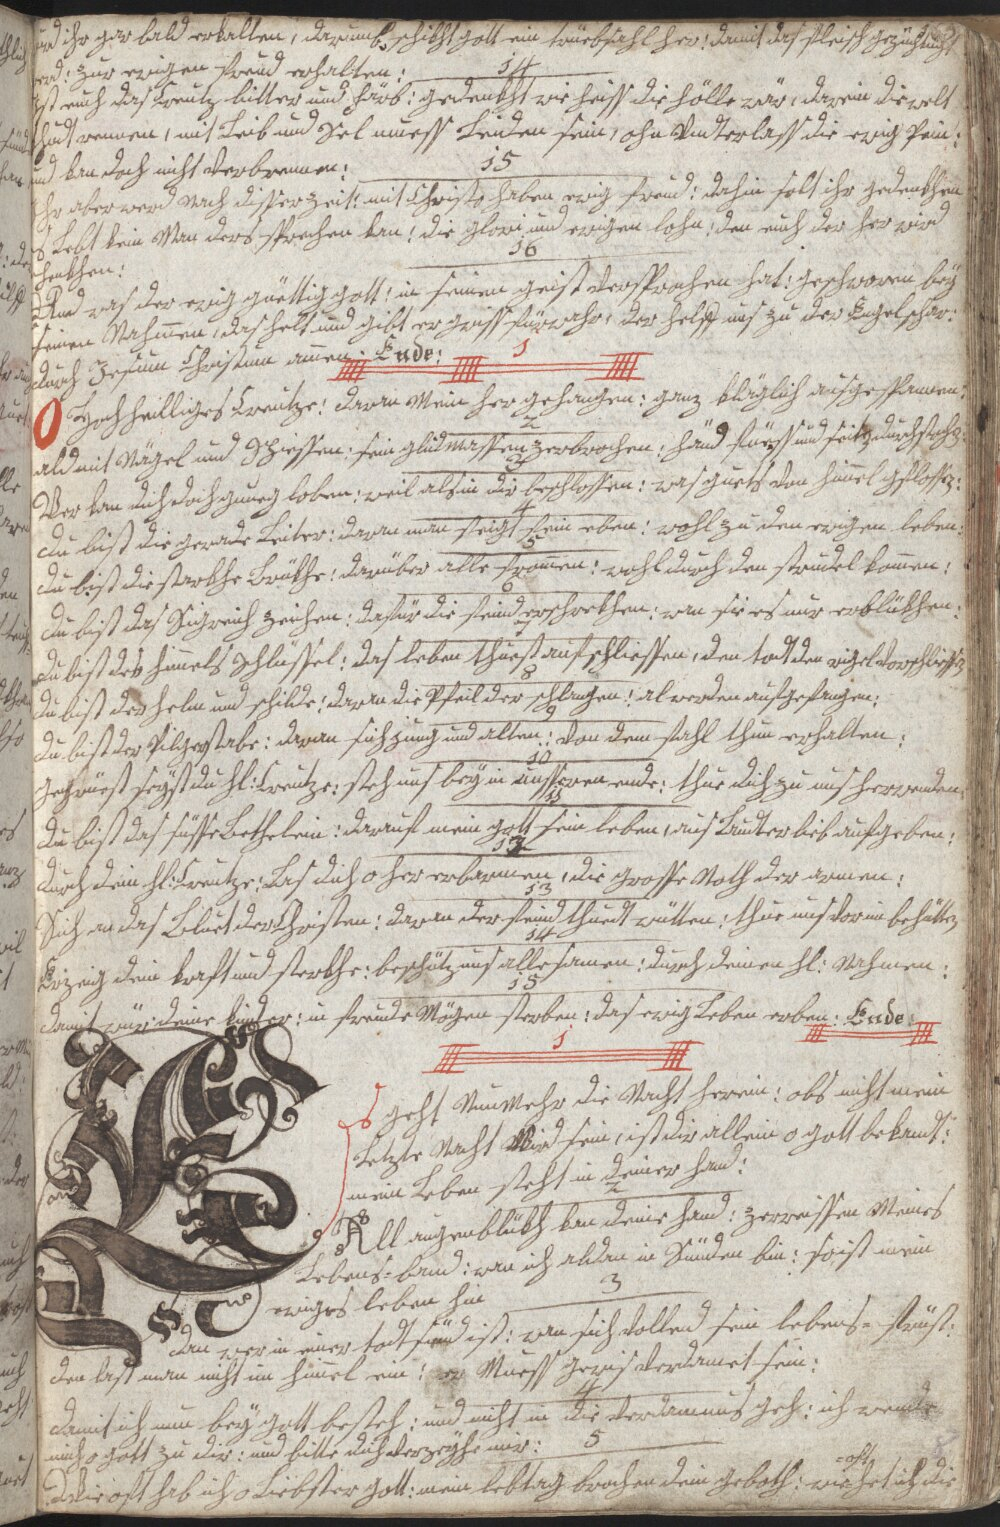 und ihr gar bald erkalten, darumb schikht gott ein trüebsahl her: damit das fleisch gezüchtigt
werd: zur ewigen freud erhalten:
14
Ist euch das Creutz bitter und härb: gedenkht wie heiss die hölle wär, darein die welt
thuet rennen, mit Leib und Sel muess Leiden sein, ohn Vnterlass die ewig Pein:
und kan doch nicht Verbrennen:
15
Ihr aber werd Nach disser zeit: mit Christo haben ewig freud: dahin solt ihr gedenkhen
Es Lebt kein Man ders sprechen kan: die glori und ewigen lohn: den euch der her wird
schenkhen:
16
Und was der ewig güettig gott: in seinen geist Versprochen hat: geschworen bey
seinen Nahmen, das helt und gibt er gwiss fürwahr, der helff uns zu der Engel schar:
durch Jesum Christum amen: Ende:
1
O Hochheilliges Creutze: daran Mein her gehangen: ganz kläglich aufgespannen:
2
ald mit Nägel und Spiessen: sein glidmassen zerbrochen: händ füess und seiten durchstoche:
3
Wer kan dich doch gnueg loben: weil als in dir beschlossen: was guets von himel gflossen:
4
du bist die gerade Leiter: daran man steigt fein eben: wohl zu den ewigen leben:
5
du bist die starkhe Brükhe: darüber alle fromen: wohl durch den strudel komen:
6
du bist das Sigreich zeichen: dafür die feind erschrekhen: wan sie es nur erblikhen:
7
du bist des himels Schlüssel: das leben thuest aufschliessen, den tod den rigel vorschiessen
8
du bist der helm und schilde: daran die Pfeil der schlangen: al werden aufgefangen:
9
du bist der Pilgerstabe: daran sich jung und alten: Von dem fahl thun erhalten:
10
gegrüest seyst du hl: Creutze: steh uns bey in unsseren ende: thue dich zu uns herwenden
11
du bist das süsse Bethelein: darauf mein gott sein leben, aus Lauter lieb aufgeben:
12
durch dein hl: Creutze: Las dich o her erbarmen, die grosse Noth der armen:
13
Sich an das Bluet der Christen: daran der feind thuedt wütten: thue uns vor im behütten
14
Erzeig dein kraft und sterkhe: beschütz uns alle samen: durch deinen hl: Nahmen:
15
damit wür deine kinder: in freude Mögen sterben: das ewig Leben erben: Ende:
1
Es geht NunMehr die Nacht herein: obs nicht mein
Letzte Nacht Wird sein, ist dir allein o gott bekandt:
mein Leben steht in deiner hand:
2
All augenblükh kan deine hand: zerreissen Meines
Lebens-band: wan ich aldan in Sünden bin: so ist mein
ewiges leben hin
3
dan wer in einer todt sünd ist: wan sich vollend sein lebens-frist:
den last man nicht im himel ein: er Muess gewis Verdamet sein:
4
damit ich nun bey gott besteh: und nicht in die Verdamnus geh: ich wende
mich o gott zu dir: und bitte dich Verzeyhe mir:
5
Wie oft hab ich o Liebster gott: mein lebtag brochen dein geboth: wie het ich die